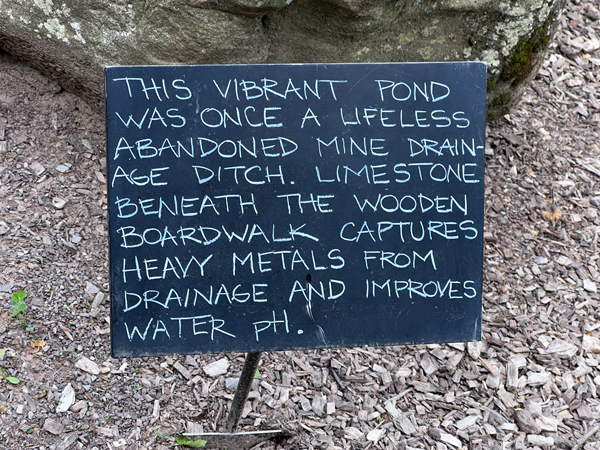 THIS VIBRANT POND
WAS ONCE A LIFELESS
ABANDONED MINE DRAIN-
AGE DITCH. LIMESTONE
BENEATH THE WOODEN
BOARDWALK CAPTURES
HEAVY METALS FROM
DRAINAGE AND IMPROVES
WATER pH.